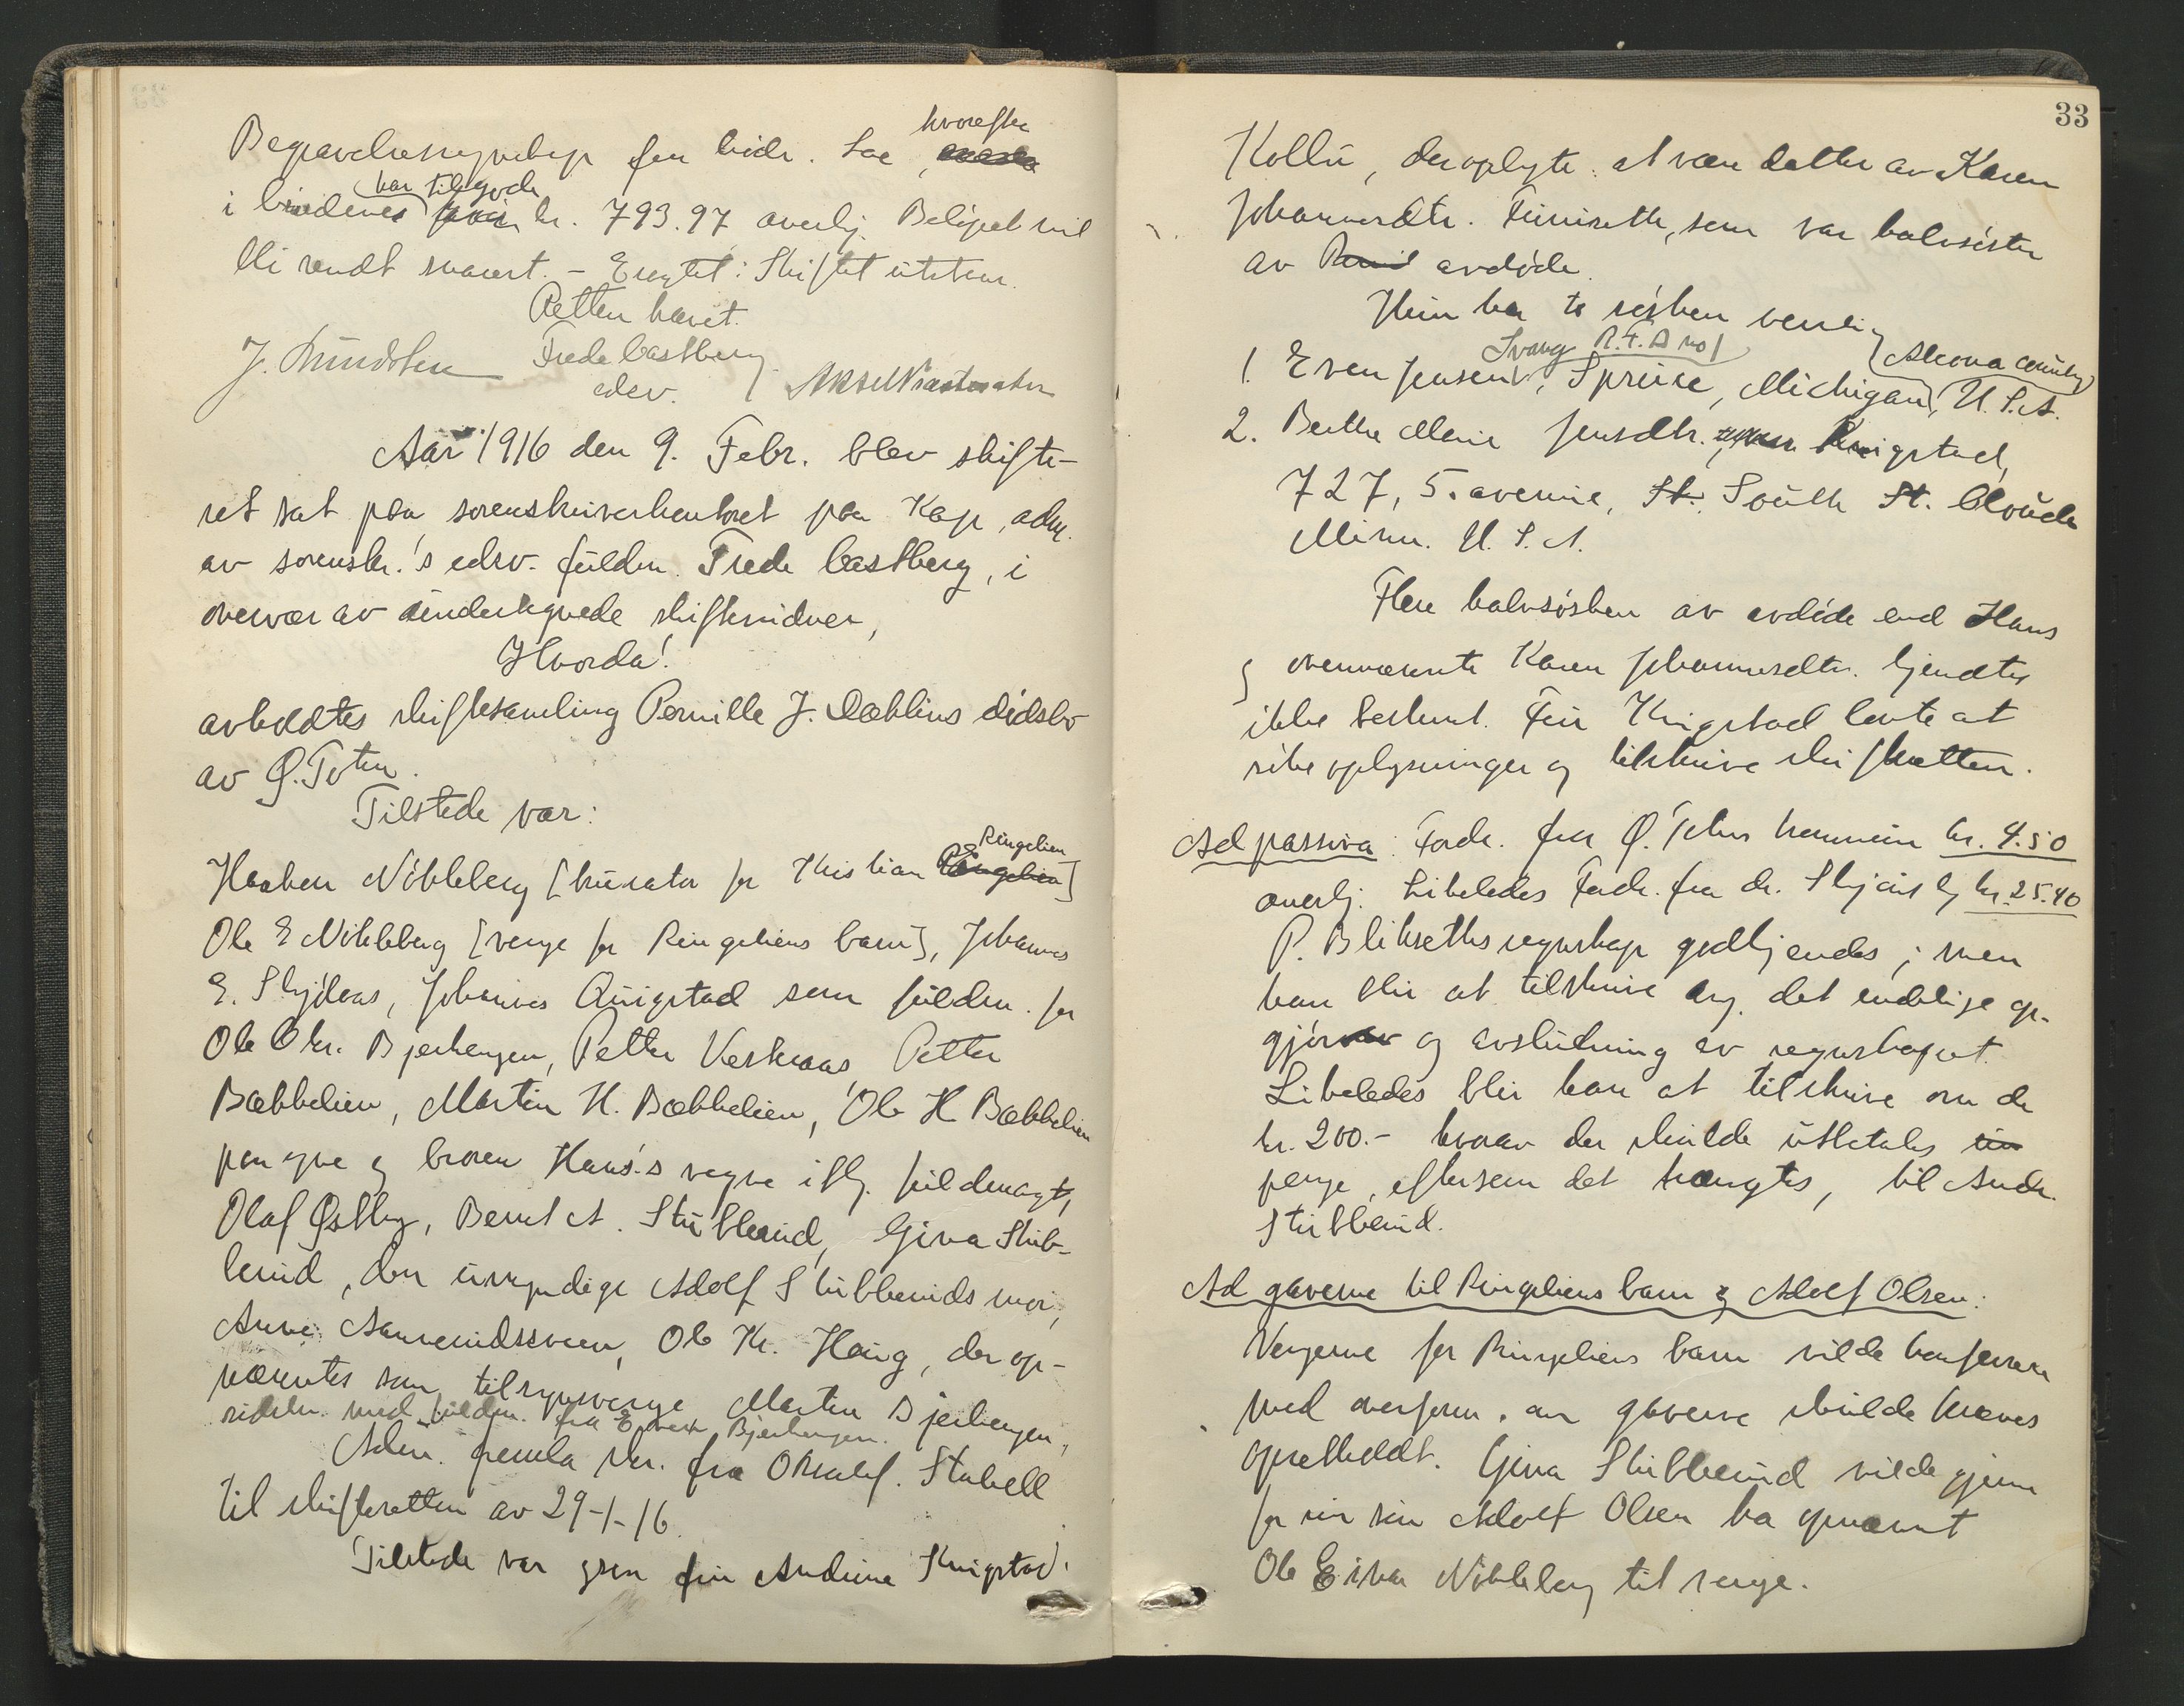 hvorefter
Begravelsesregnskap fra lødr. Lae,
har tilgode
i lødenes kr. 793.97 averlj. Beløpet vil
bli sendt snarest. - Eragtet: Skiftet utstaar.
Retten hævet.
J. Lundsten Frede Castberg
edsv.
Aar 1916 den 9. Febr. blev skifte-
ret sat paa sorenskriverkontoret paa Kap, adm.
av sorenskr.'s edsv. fuldm. Frede Castberg, i
overvær av undertegnede skiftevidner,
Hvorda!
avholdtes skiftesamling Pernille J. Dæhlins dødsbo
av Ø. Toten.
Tilstede var:
Ringelien
Haaken Nøkleberg [kurator for Kristian Ringelien]
Ole E Nøkleberg [verge for Ringeliens barn], Johannes
E. Skjølaas, Johannes Quigstad som fuldm. for
Ole Chr. Bjerkengen, Petter Veskraas, Petter
Bækkelien, Martin H. Bækkelien, Ole H Bækkelien
paa egne og broren Hans's vegne iflg. fuldmagt,
Olaf Østby, Bernt A. Stubberud, Gina Stub-
berud, den umyndige Adolf Stubberuds mor,
Anne Aanerudssveen, Ole Kr. Haug, der op-
nævntes som tilsynsverge Martin Bjerkengen,
sidstn. med fuldm. fra Even Bjerkengen.
Adm. fremla skr. fra Oksalf. Stabell
til skifteretten av 29-1-16.
Tilstede var ogsaa fru Andrine Knigstad
33
Kollu, der oplyste at være datter av Karen
Johannesdtr. Finiseth, som var halvsøster
av avdøde.
Hun har to søsken nemlig
Svang R.F.D no 1 Alcona county
1. Even Jensen, Spruce, Michigan, U.S.A.
2. Berthe Marie Jensdtr., Ringstad,
727, 5. avenue, St. South St. Cloude
Minn. U.S.A.
Flere halvsøsken av avdøde end Hans
og ovennævnte Karen Johannesdtr. kjendtes
ikke bestemt. Fru Knigstad lovte at
søke oplysninger og tilskrive skifteretten.
Ad passiva: Fordr. fra Ø. Totens kommune kr. 4.50
averlj. Likeledes Fordr. fra dr. Skjaus lj kr. 25.40
P. Blikseths regnskap godkjendes; men
han blir at tilskrive ang. det endelige op-
gjør og avslutning av regnskapet.
Likeledes blir han at tilskrive om de
kr. 200.- hvorav der skulde utbetales
penge, eftersom det trængtes, til Andr.
Stubberud.
Ad gaverne til Ringeliens barn og Adolf Olsen:
Vergerne for Ringeliens barn vilde konferere
med overform. om gaverne skulde kræves
opretholdt. Gina Stubberud vilde gjerne
for sin søn Adolf Olsen ha opnævnt
Ole Einar Nøkleberg til verge.